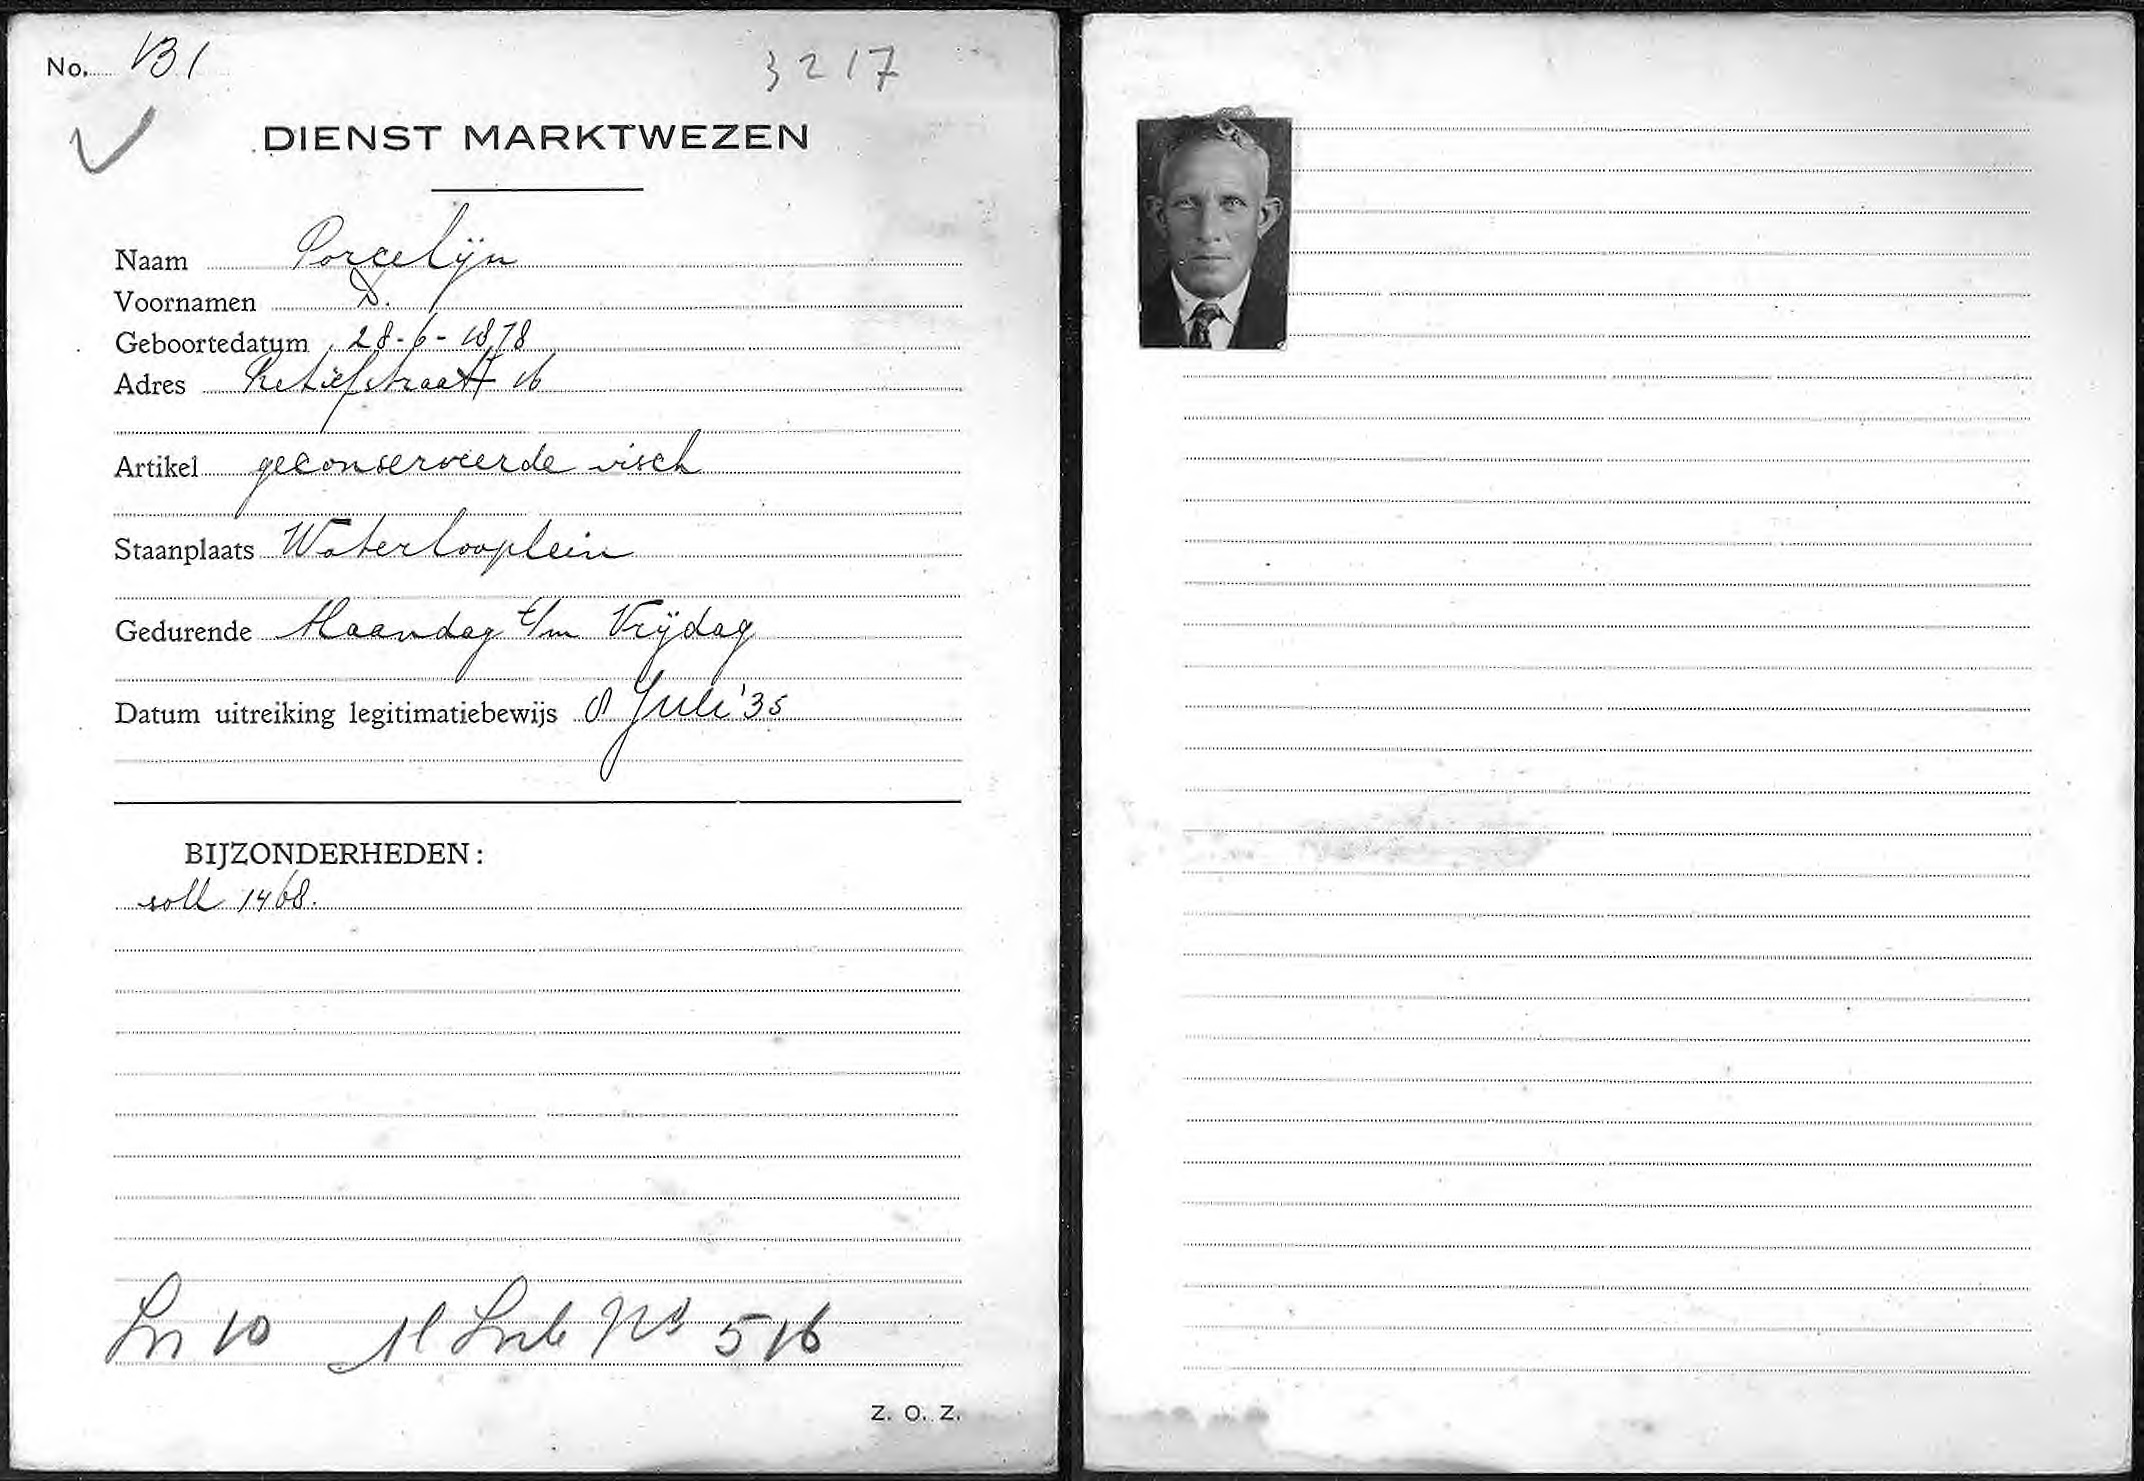 No. 131
3217
DIENST MARKTWEZEN
Naam Porcelijn
Voornamen D.
Geboortedatum 28-6-1878
Adres Retiefstraat 16
Artikel geconserveerde visch
Staanplaats Waterlooplein
Gedurende Maandag t/m Vrijdag
Datum uitreiking legitimatiebewijs 8 Juli '35
BIJZONDERHEDEN:
soll 1468.
Ln 10 No 516
Z. O. Z.